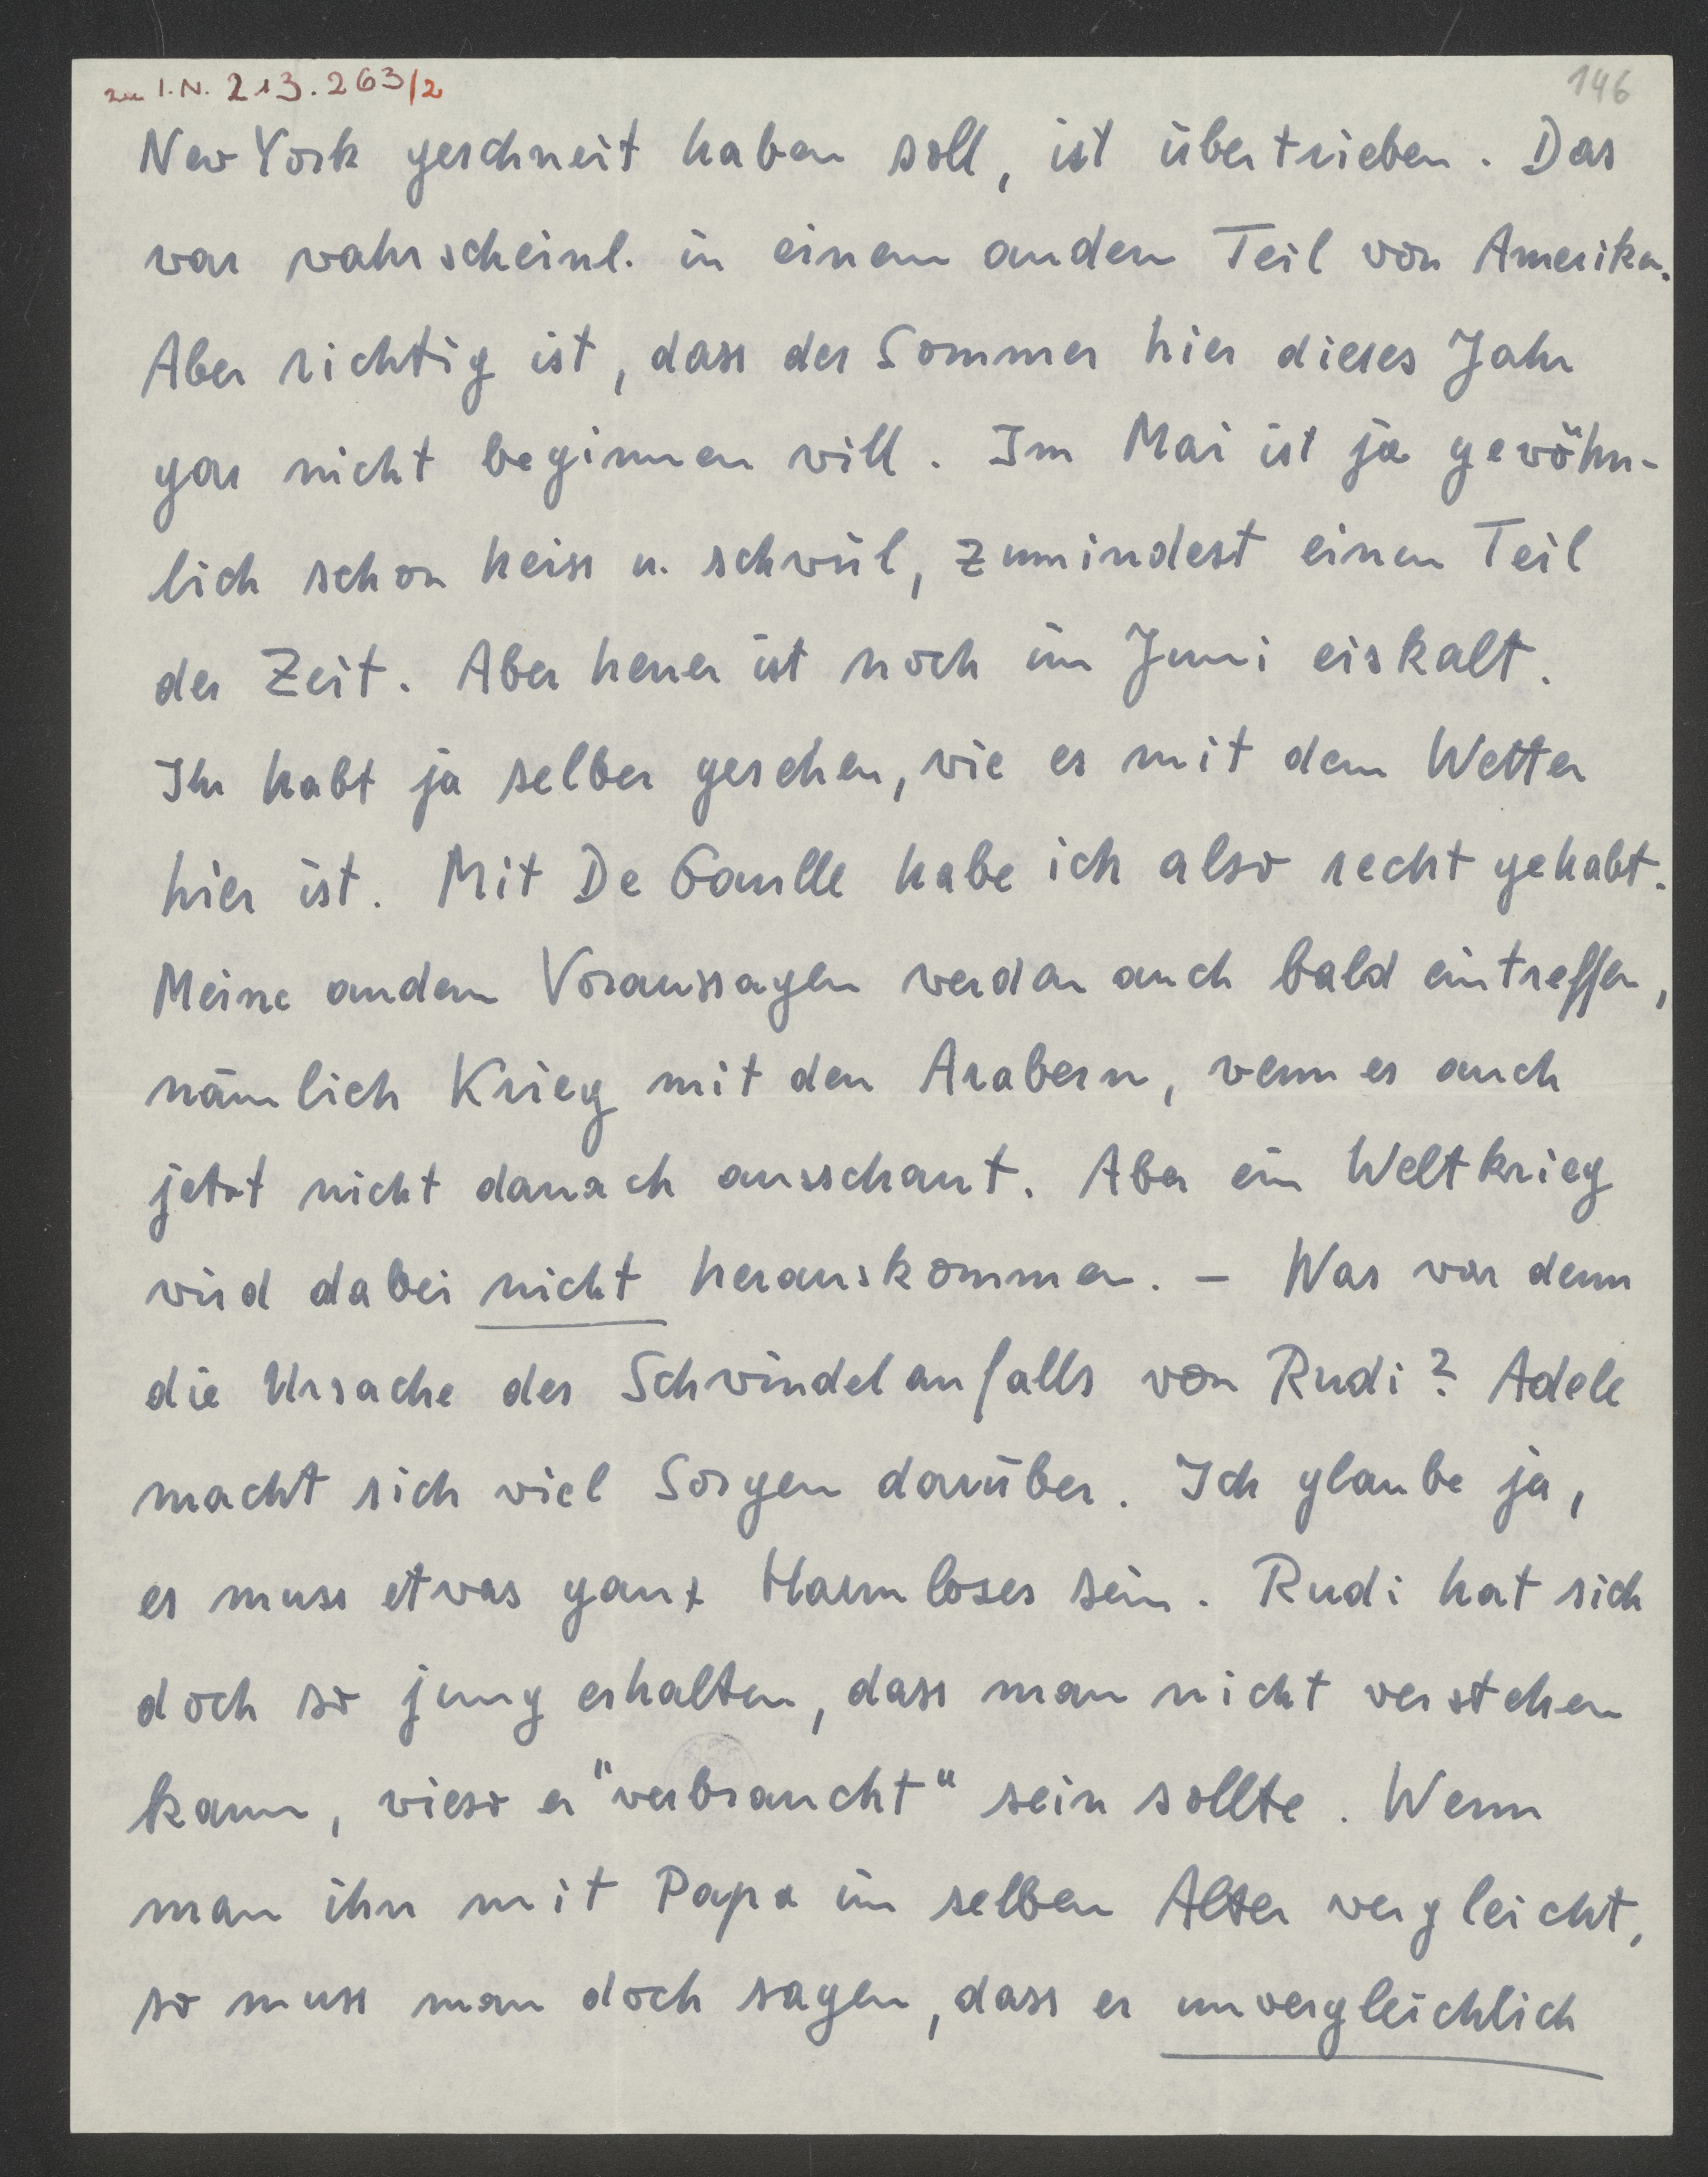 zu I.N. 213.263/2
146
New York geschneit haben soll, ist übertrieben. Das
war wahrscheinl. in einem andern Teil von Amerika.
Aber richtig ist, dass der Sommer hier dieses Jahr
gar nicht beginnen will. Im Mai ist ja gewöhn-
lich schon heiss u. schwül, zumindest einen Teil
der Zeit. Aber heuer ist noch im Juni eiskalt.
Ihr habt ja selber gesehen, wie es mit dem Wetter
hier ist. Mit De Gaulle habe ich also recht gehabt.
Meine andern Voraussagen werden auch bald eintreffen,
nämlich Krieg mit den Arabern, wenn es auch
jetzt nicht danach ausschaut. Aber ein Weltkrieg
wird dabei nicht herauskommen. – Was war denn
die Ursache des Schwindelanfalls von Rudi? Adele
macht sich viel Sorgen darüber. Ich glaube ja,
es muss etwas ganz Harmloses sein. Rudi hat sich
doch so jung erhalten, dass man nicht verstehen
kann, wieso er "verbraucht" sein sollte. Wenn
man ihn mit Papa im selben Alter vergleicht,
so muss man doch sagen, dass er unvergleichlich